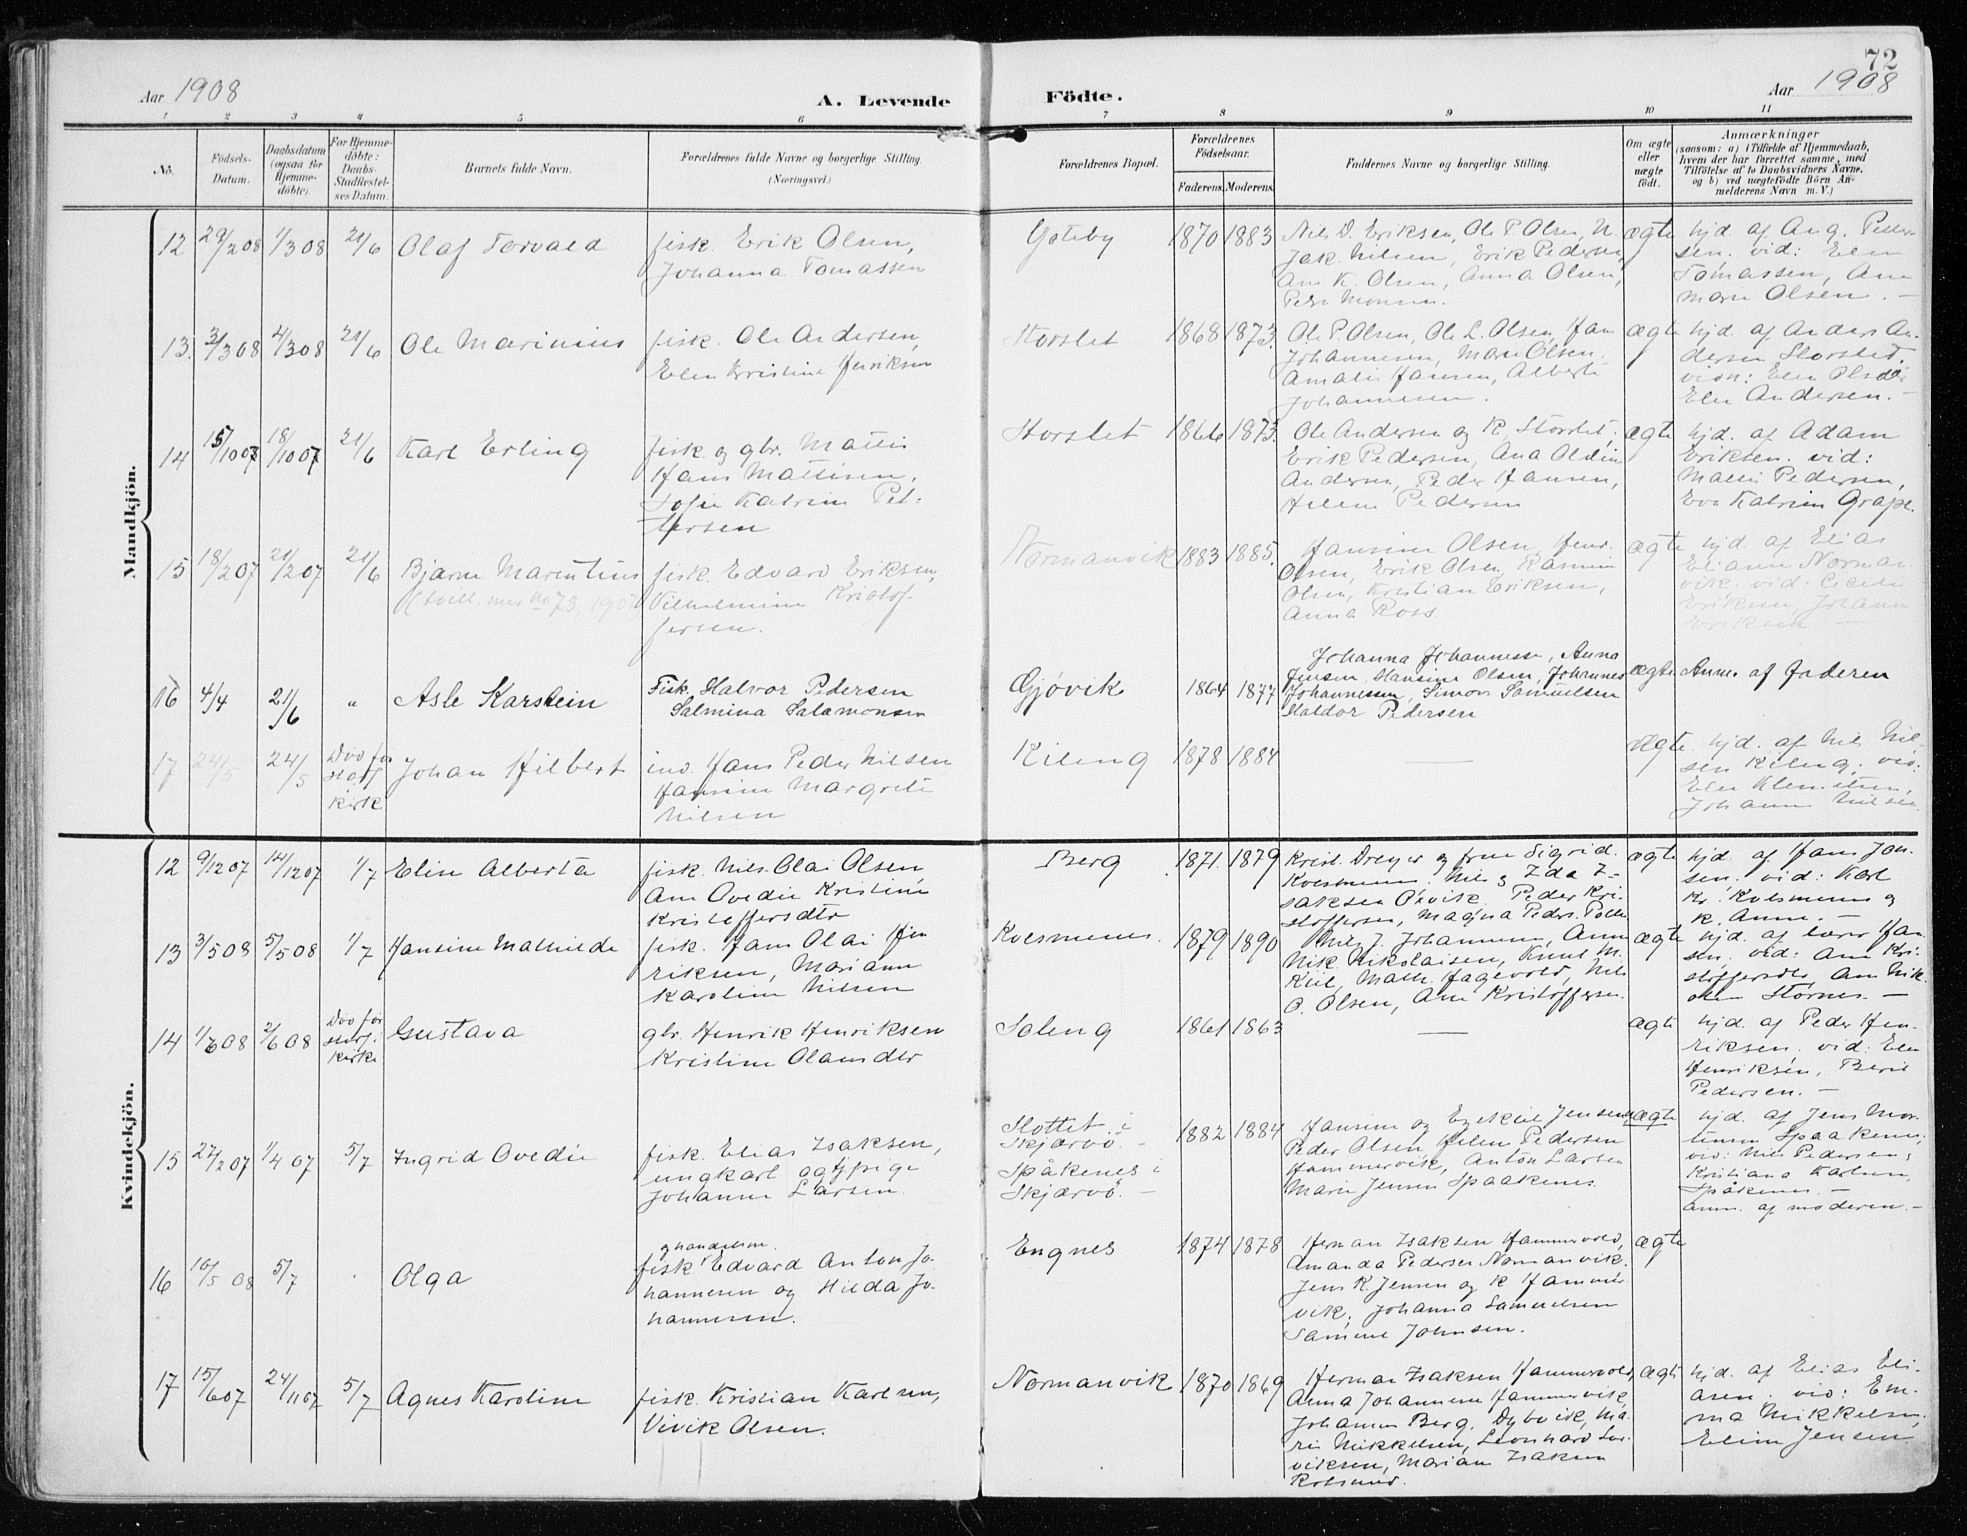 72
Aar 1908
A. Levende Födte.
Aar 1908
1 2 3 4 5 6 7 8 9 10 11
No.
Födsels-Datum.
Daabsdatum (ogsaa for Hjemmedöbte).
For Hjemmedöbte: Daabs-Stadfæstelses Datum.
Barnets fulde Navn.
Forældrenes fulde Navne og borgerlige Stilling.
(Næringsvei.)
Forældrenes Bopæl.
Forældrenes Fødselsaar.
Faderens. Moderens.
Faddernes Navne og borgerlige Stilling.
Om ægte eller uægte födt.
Anmærkninger
(saasom: a) i Tilfælde af Hjemmedaab, hvem der har forrettet samme, med Tilföielse af to Daabsvidners Navne, og b) ved uægtefödte Börn Anmelderens Navn m. V.)
Mandkjön.
12 29/2 08 1/3 08 21/6 Olaf Torvald
fisk. Erik Olsen,
Johanna Tomassen
Goteby 1870 1883
Nils D. Eriksen, Ole P. Olsen, N.
Jak. Nilsen, Erik Pedersen,
Ane K. Olsen, Anna Olsen,
Petra Monsen.
ægte
hjd. af Aug. Peder-
sen. vid: Elen
Tomassen, Ane
Marie Olsen. —
13. 3/3 08 4/3 08 21/6 Ole Marinius
fisk. Ole Andersen,
Elen Kristine Henriksen
Storslet 1868 1873.
Ole P. Olsen, Ole L. Olsen, Han
Johannesen, Marie Olsen.
Amalie Hansen, Alberte
Johannesen.
ægte
hjd. af Anders An-
dersen Storslet.
vidn: Elen
Elen Andersen. —
14 15/10 07 18/10 07 21/6 Karl Erling
fisk. og gbr. Mattis
Hans Mattisen,
Sofie Katrine Pet-
tersen
Storslet 1866 1873.
Ole Andersen og K. Storslet,
Erik Pedersen, Ana Oldine
Andersen, Peder Hansen,
Helene Pedersen
ægte
hjd. af Adam
Eriksen. vid:
Mattis Pedersen,
Eva Katrine Grape.
15 18/2 07 21/2 07 21/6 Bjarne Marentius
(tvill. med No 73,
fisk. Edvard Eriksen,
Vilhelmine Kristof-
fersen.
Normanvik 1883 1885.
Hansine Olsen, Henr.
Olsen, Erik Olsen, Rasmus
Olsen, Kristian Eriksen,
Anna Ross.
ægte
hjd. af Elias
Eliasen Norman-
vik, vid: Cecilie
Eriksen, Johan
Eriksen —
16 4/4 21/6 " Asle Karstein
Fisk. Halvor Pedersen
Salmina Salamonsen
Gjøvik 1864 1877
Johanna Johannessen, Anna
Jensen, Hansine Olsen, Johannes
Johannessen, Simon Samuelsen
Haldor Pedersen
ægte
Anm. af faderen
17 24/5 24/5 Død før stadf. i kirke Johan Hilbert
ind. Hans Peder Nilsen
Hansine Margrete
Nilsen
Kileng 1878 1884 —
ægte
hjd. af Nils Nil-
sen Kileng, vid:
Elen Klemetsen,
Johanne Nilsen
Kvindekjön.
12 9/12 07 14/12 07 1/7 Elin Alberta
fisk. Nils Olai Olsen,
Ane Ovedie Kristine
Kristoffersdtr
Berg 1871. 1879
Krist. Dreyer og frue Sigrid.
Kvesmenes. Nils og Ida I-
saksen Oxvik. Peder Kri-
stoffersen, Magna Peders.
ægte
hjd. af Hans Jon-
sen. vid: Karl
Kr. Kvesmenes og
k. Anne. —
13 3/5 08 5/5 08 1/7 Hansine Mathilde
fisk. Hans Olai Hen
riksen, Mariann
Karoline Nilsen
Kvesmenes. 1879 1890
Nils J. Johannesen, Anne
Nik. Nikolaisen, Knut M.
Kiil, Math. Fagervold, Nils
O. Olsen, Ane Kristoffersen.
ægte
hjd. af lærer Han
sen. vid: Ane Kri-
stoffersdtr, Ane Mik-
Stornes. —
14 1/6 08 2/6 08 Død før stadf. i kirke Gustava
gbr. Henrik Henriksen
Kristine Olausdtr
Soleng 1861 1863 —
ægte
hjd. af Peder Hen-
riksen, vid: Elen
Henriksen, Berit
Pedersen. —
15 27/2 07 1/4 07 5/7 Ingrid Ovedie
fisk. Elias Isaksen,
ungkarl og pige
Johanne Larsen.
Slottet i
Skjærvö. —
Spåkenes i
Skjærvö. —
1882 1884
Hansine og Esekiel Jensen,
Peder Olsen, Helene Pedersen
Hammervik, Anton Larsen
Marie Jensen Spaakenes.
uægte
hjd. af Jens Mor-
tensen Spaakenes;
vid: Nils Pedersen,
Kristiana Karlsen,
Spåkenes. —
anm. af moderen. —
16 10/5 08 5/7 . Olga
og handelsm.
fisk Edvard Anton Jo-
hannesen og Hilda Jo-
hannesen.
Engnes 1874 1878
Herman Isaksen Hammervold,
Amanda Pedersen Normanvik.
Jens K. Jensen og K Hammer-
vik, Johanna Samuelsen
Samuel Johnsen.
ægte
17 15/6 07 24/11 07 5/7 Agnes Karoline
fisk. Kristian Karlsen,
Vivik Olsen.
Normanvik 1870 1869
Herman Isaksen Hammervold,
Anna Johannesen Hammervik,
Johannes Berg, Dybvik, Ma-
rie Mikkelsen, Leonhard Lar-
Marian Isaksen
Rotsund.
ægte
hjd. af Elias Eli-
asen. vid: Em-
ma Mikkelsen,
Eline Jensen